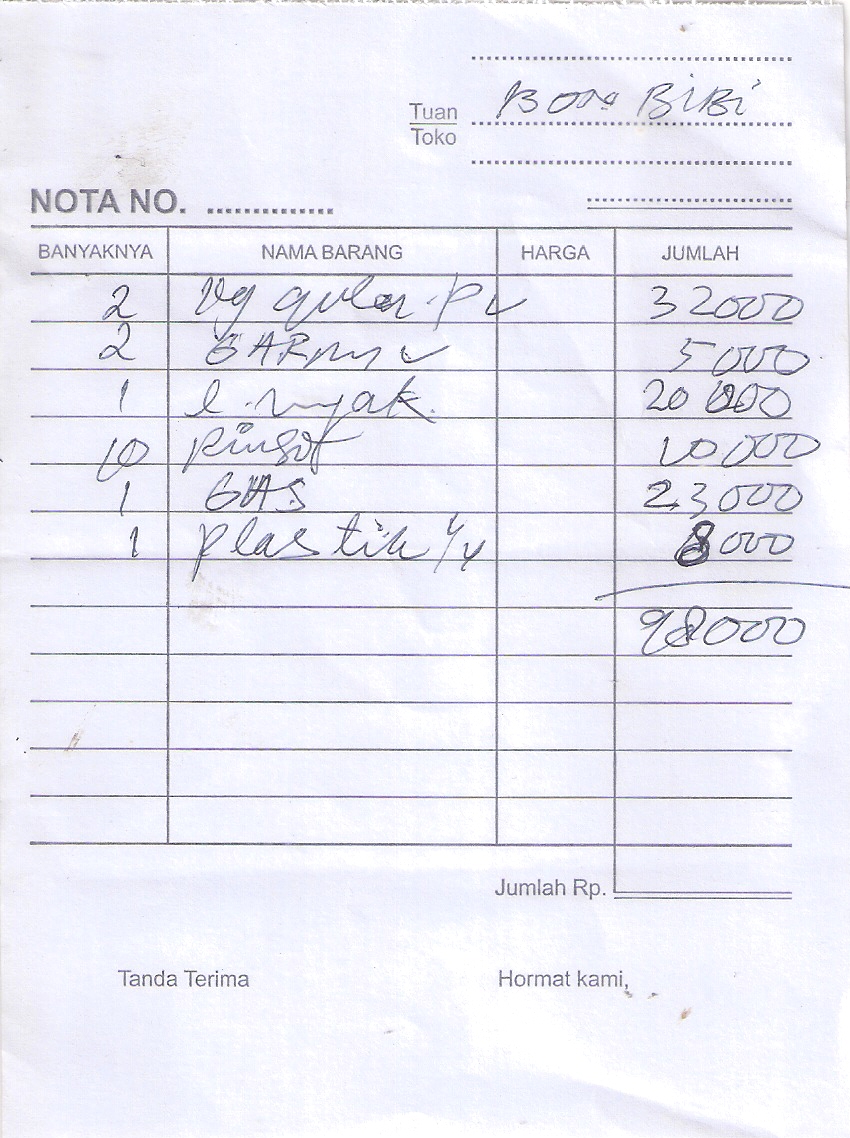 BON BIBI
Tuan
Toko
NOTA NO. ..............
BANYAKNYA NAMA BARANG HARGA JUMLAH
2 Kg gula P 32000
2 GARAM 5000
1 l. nyak. 20000
10 10000
1 GAS 23000
1 plastik 1/4 8000
98000
Jumlah Rp.
Tanda Terima Hormat kami,